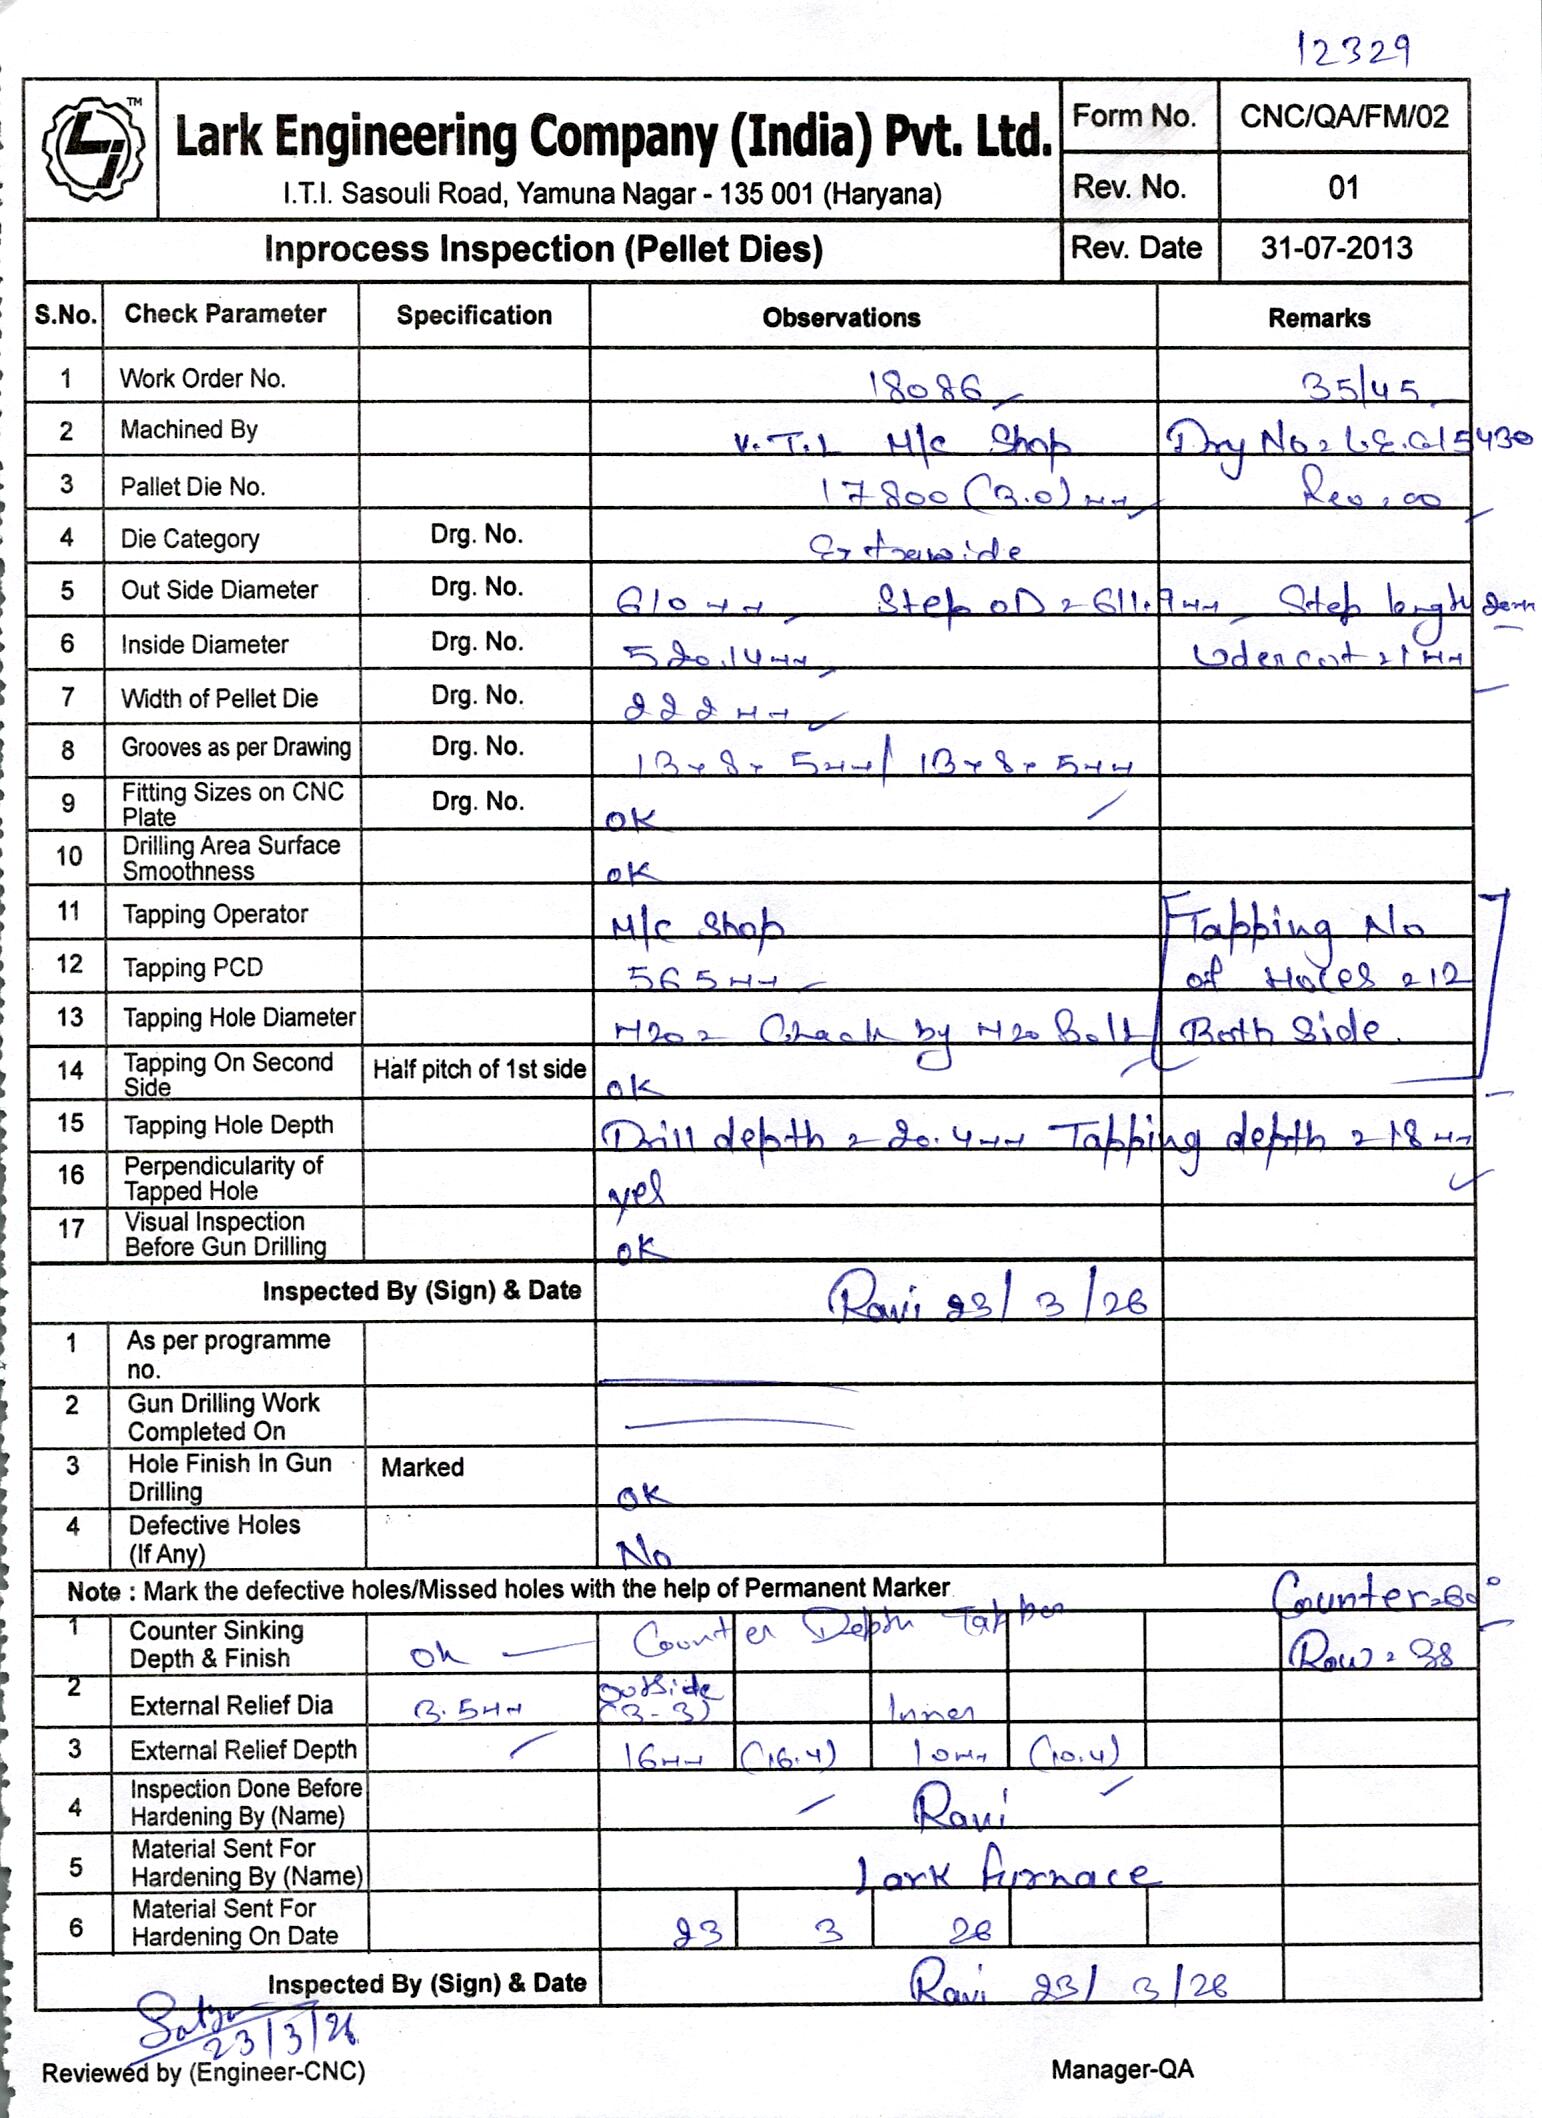 12329
TM
Lark Engineering Company (India) Pvt. Ltd.
I.T.I. Sasouli Road, Yamuna Nagar - 135 001 (Haryana)
Form No. CNC/QA/FM/02
Rev. No. 01
Inprocess Inspection (Pellet Dies) Rev. Date 31-07-2013
S.No. Check Parameter Specification Observations Remarks
1 Work Order No. 18086 35/45
2 Machined By V.T.L M/c Shop
3 Pallet Die No. 17800 (3.0) mm Rev = 00
4 Die Category Drg. No. Extrawide
5 Out Side Diameter Drg. No. 610 mm Step OD = 611.9 mm Step length 2mm
6 Inside Diameter Drg. No. 520.14 mm Udercut = 1 mm
7 Width of Pellet Die Drg. No. 222 mm
8 Grooves as per Drawing Drg. No. 13 x 8 x 5 mm / 13 x 8 x 5 mm
9 Fitting Sizes on CNC Plate Drg. No. OK
10 Drilling Area Surface Smoothness OK
11 Tapping Operator M/c Shop Tapping No
12 Tapping PCD 565 mm of Holes = 12
13 Tapping Hole Diameter M20 = Chack by M20 Bolt Both Side.
14 Tapping On Second Side Half pitch of 1st side OK
15 Tapping Hole Depth Drill depth = 20.4 mm Tapping depth = 18 mm
16 Perpendicularity of Tapped Hole yes
17 Visual Inspection Before Gun Drilling OK
Inspected By (Sign) & Date Ravi 23/3/26
1 As per programme no.
2 Gun Drilling Work Completed On
3 Hole Finish In Gun Drilling Marked OK
4 Defective Holes (If Any) No
Note : Mark the defective holes/Missed holes with the help of Permanent Marker Counter = 60°
1 Counter Sinking Depth & Finish Ok Counter Depth Row = 38
2 External Relief Dia 3.5 mm outside (3-3) Inner
3 External Relief Depth 16 mm (16.4) 10 mm (10.4)
4 Inspection Done Before Hardening By (Name) Ravi
5 Material Sent For Hardening By (Name) Lark furnace
6 Material Sent For Hardening On Date 23 3 26
Inspected By (Sign) & Date Ravi 23/3/26
23/3/26
Reviewed by (Engineer-CNC) Manager-QA